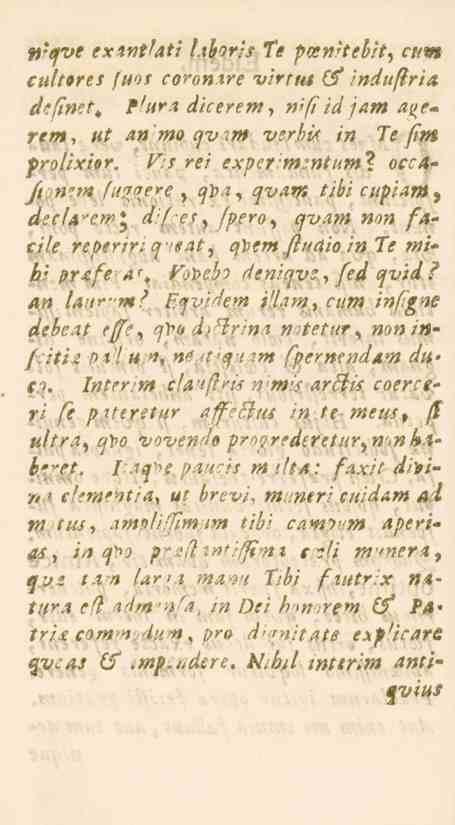 niqve exantlati laboris Te pœnitebit, cum
cultores ſuos coronare virtus & induſtria
deſinet. Plura dicerem, niſi id jam age-
rem, ut animo qvam verbis in Te ſim
prolixior. Vis rei experimentum? occa-
ſionem ſuggere, qva, qvam tibi cupiam,
declarem; diſces, ſpero, qvam non fa-
cile reperiri qveat, qvem ſtudio in Te mi-
hi præferas. Vovebo deniqve, ſed qvid?
an laurum? Eqvidem illam, cum inſigne
debeat eſſe, qvo doctrina notetur, non in-
ſcitiæ pallium, neutiquam ſpernendam du-
co. Interim clauſtris nimis arctis coerce-
ri ſe pateretur affectus in te meus, ſi
ultra, qvo vovendo progrederetur, non ha-
beret. Itaqve paucis multa: faxit divi-
na clementia, ut brevi, muneri cuidam ad
motus, ampliſſimum tibi campum aperi-
as, in qvo præſtantiſſima cœli munera,
qvæ tam larga manu Tibi fautrix na-
tura eſt admenſa, in Dei honorem & Pa-
triæ commodum, pro dignitate explicare
qveas & impendere. Nihil interim anti-
qvius